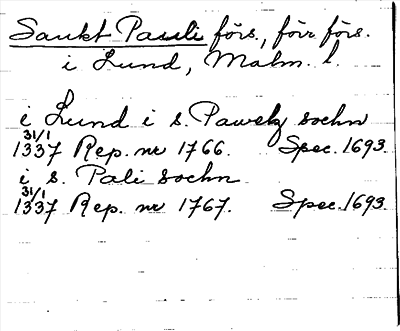 Sankt Pauli förs., förr förs.
i Lund, Malm. l.
i Lund i s. Pawelz sochn
31/1
1337 Rep. nr 1766. Spec. 1693.
i s. Pali sochn
31/1
1337 Rep. nr 1767. Spec. 1693.